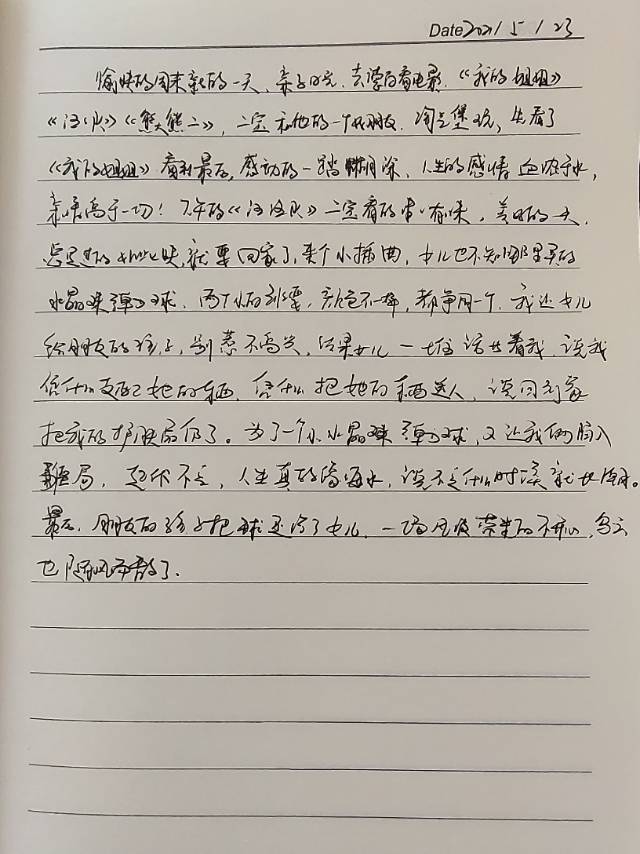 Date 2021 / 5 / 23
愉快的周末新的一天,亲子时光,去影百看电影,《我的姐姐》
《》《熊大熊二》,二宝和他的一个朋友,淘气堡玩,先看了
《我的姐姐》看到最后,感动的一踏糊涂,人生的感情血浓于水,
亲情高于一切!下午的《》二宝看的有味,美好的一天
总是过的,就要回家了,来个小插曲,女儿也不知哪里弄的
水晶球弹力球,两个小的都要,颜色不一样,都争用一个,我让女儿
给朋友的孩子,别惹不高兴,结果女儿一堆话出着我,说我
凭什么支配她的东西,凭什么把她的东西送人,说回到家
把我的护肤扔了。为了一个小水晶球弹力球,又让我俩陷入
僵局,人生真的像海水,说不定什么时候就出。
最后,朋友的孩子把球还给了女儿,一场的不开心,乌云
也随风而散了.